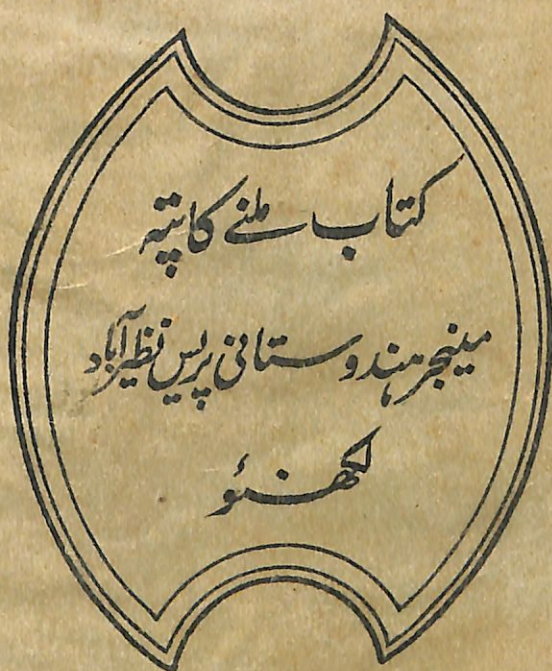 کتاب ملنے کا پتہ
مینجر ہندوستانی پریس نظیرآباد
لکھنئو